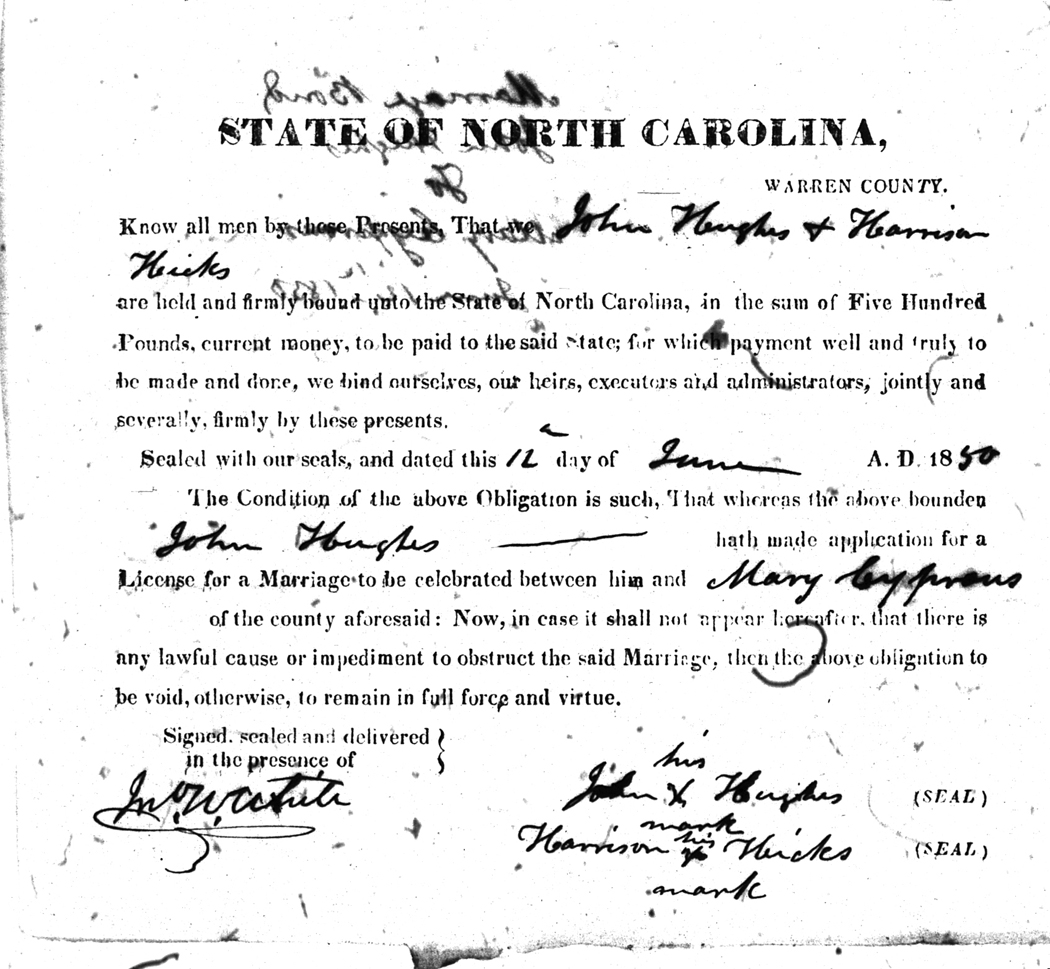 STATE OF NORTH CAROLINA,
WARREN COUNTY.
Know all men by these Presents, That we John Hughes & Harrison
Hicks
are held and firmly bound unto the State of North Carolina, in the sum of Five Hundred
Pounds, current money, to be paid to the said State; for which payment well and truly to
be made and done, we bind ourselves, our heirs, executors and administrators, jointly and
severally, firmly by these presents.
Sealed with our seals, and dated this 12 day of June A. D. 1850
The Condition of the above Obligation is such, That whereas the above bounden
John Hughes hath made application for a
License for a Marriage to be celebrated between him and Mary Cyprous
of the county aforesaid: Now, in case it shall not appear hereafter, that there is
any lawful cause or impediment to obstruct the said Marriage, then the above obligation to
be void, otherwise, to remain in full force and virtue.
Signed, sealed and delivered
in the presence of
his
Jno. W. White John X Hughes (SEAL)
mark
his
Harrison X Hicks (SEAL)
mark